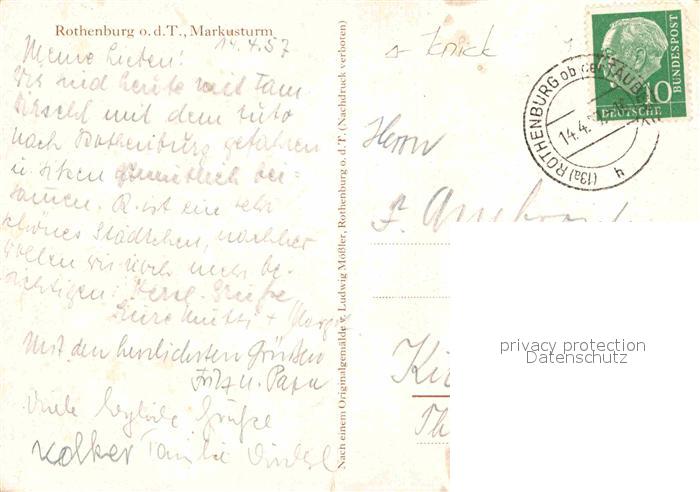 Rothenburg o.d.T., Markusturm
14.4.57
Meine Lieben!
Wir sind heute mit Fam.
mit dem Auto
nach Rothenburg gefahren
u. sitzen gemütlich bei-
samen. R. ist ein sehr
schönes Städtchen, nachher
wollen wir noch mehr be-
sichtigen. Herzl. Grüße
Eure Mutti + Margit
Mit den herzlichsten Grüßen
Fritz u. Papa
Viele herzliche Grüße
Volker Familie
Nach einem Originalgemälde v. Ludwig Mößler, Rothenburg o.d.T. (Nachdruck verboten)
Knick
Herrn
F.
Ki
Th
DEUTSCHE BUNDESPOST
10
(13a) ROTHENBURG ob der TAUBER
14.4.
privacy protection
Datenschutz